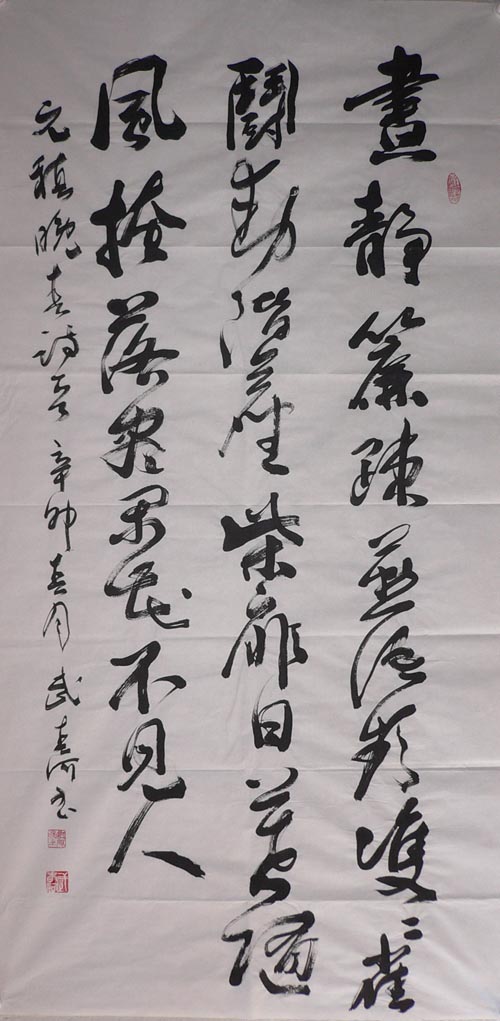 晝靜簾疎燕語頻雙〻雀
鬪動階塵柴扉日暮随
風掩落尽閑花不見人
元稹晚春詩一首 辛卯春月 武春河书